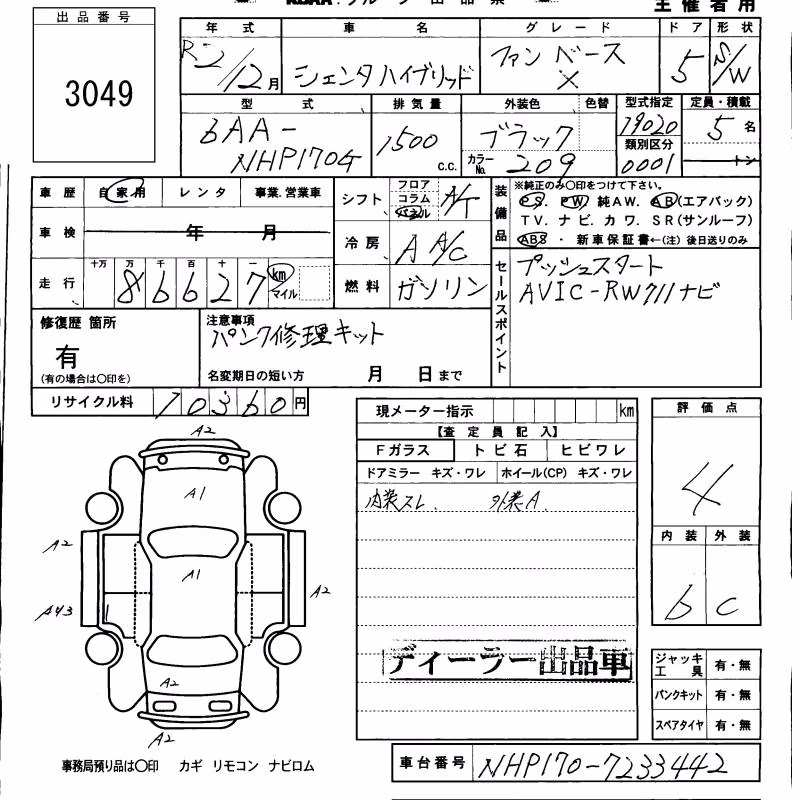 出品番号
3049
主催者用
年式 車名 グレード ドア 形状
R-2/12月 シエンタハイブリッド ファンベース X 5 S/W
型式 排気量 外装色 色替 型式指定 定員・積載
6AA-NHP170G 1500 c.c. ブラック 19020 5名
カラーNo. 209 類別区分 0001 トン
車歴 自家用 レンタ 事業.営業車
シフト フロア コラム パネル A/T
装備品 ※純正のみ〇印をつけて下さい。
PS. PW 純AW. AB(エアバック)
TV. ナビ. カワ. SR(サンルーフ)
ABS ・ 新車保証書←(注) 後日送りのみ
車検 年 月
冷房 A A/C
走行 十万 万 千 百 十 一
86627 km マイル
燃料 ガソリン
セールスポイント
プッシュスタート
AVIC-RW711ナビ
修復歴 箇所
有
(有の場合は〇印を)
注意事項
パンク修理キット
名変期日の短い方 月 日まで
リサイクル料 10360円
現メーター指示 km
【査定員記入】
Fガラス トビ石 ヒビワレ
ドアミラー キズ・ワレ ホイール(CP) キズ・ワレ
内装スレ. 外装A.
評価点
4
内装 外装
b c
A2
A1
A2
A1
A2
A43
A2
A2
ディーラー出品車
ジャッキ工具 有・無
パンクキット 有・無
スペアタイヤ 有・無
事務局預り品は〇印 カギ リモコン ナビロム
車台番号 NHP170-7233442